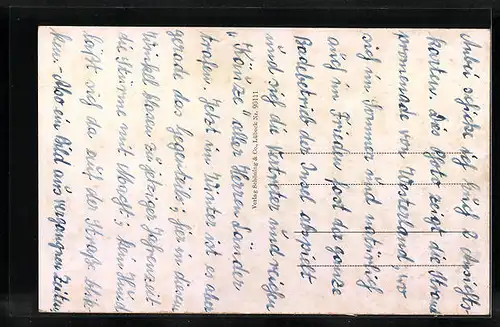 Anbei schicke ich Euch 2 Ansichts-
karten. Die Photo zeigt die Strand-
promenade von Westerland, wo
sich im Sommer und natürlich
auch im Frieden fast der ganze
Badebetrieb der Insel abspielt
und sich die Vertreter und reichen
"Käuze" aller Herren Länder
trafen. Jetzt im Winter ist es aber
gerade das Gegenteil; hier in diesem
Winkel blasen zu jetziger Jahreszeit
die Stürme mit Macht; kein Hund
läßt sich da auf der Straße blik-
ken. - Also ein Bild aus vergangnen Zeiten.
Verlag Schöning & Co., Lübeck Na. 95111